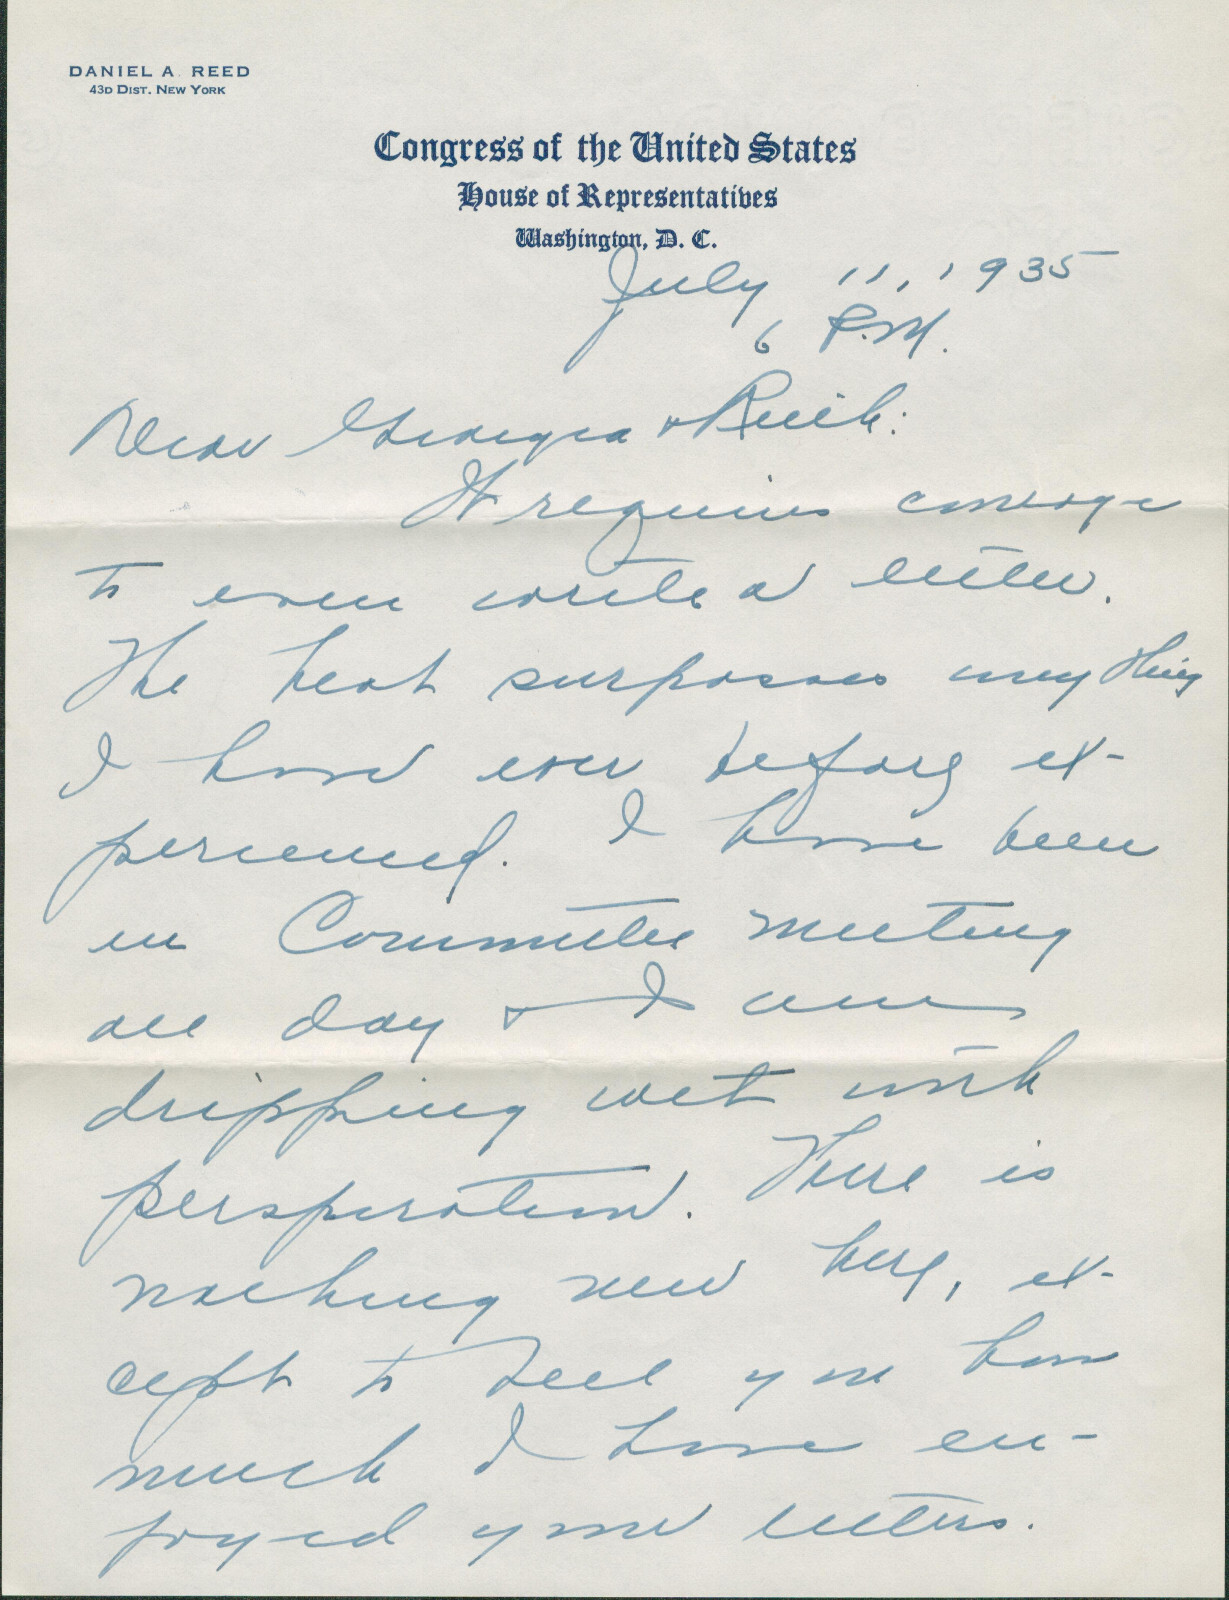 DANIEL A. REED
43D DIST. NEW YORK
Congress of the United States
House of Representatives
Washington, D. C.
July 11, 1935
6 P.M.
Dear Georgia & Ruth:
It requires courage
to even write a letter.
The heat surpasses anything
I have ever before ex-
perienced. I have been
in Committee meeting
all day & I am
dripping wet with
perspiration. There is
nothing new here, ex-
cept to tell you how
much I have en-
joyed your letters.